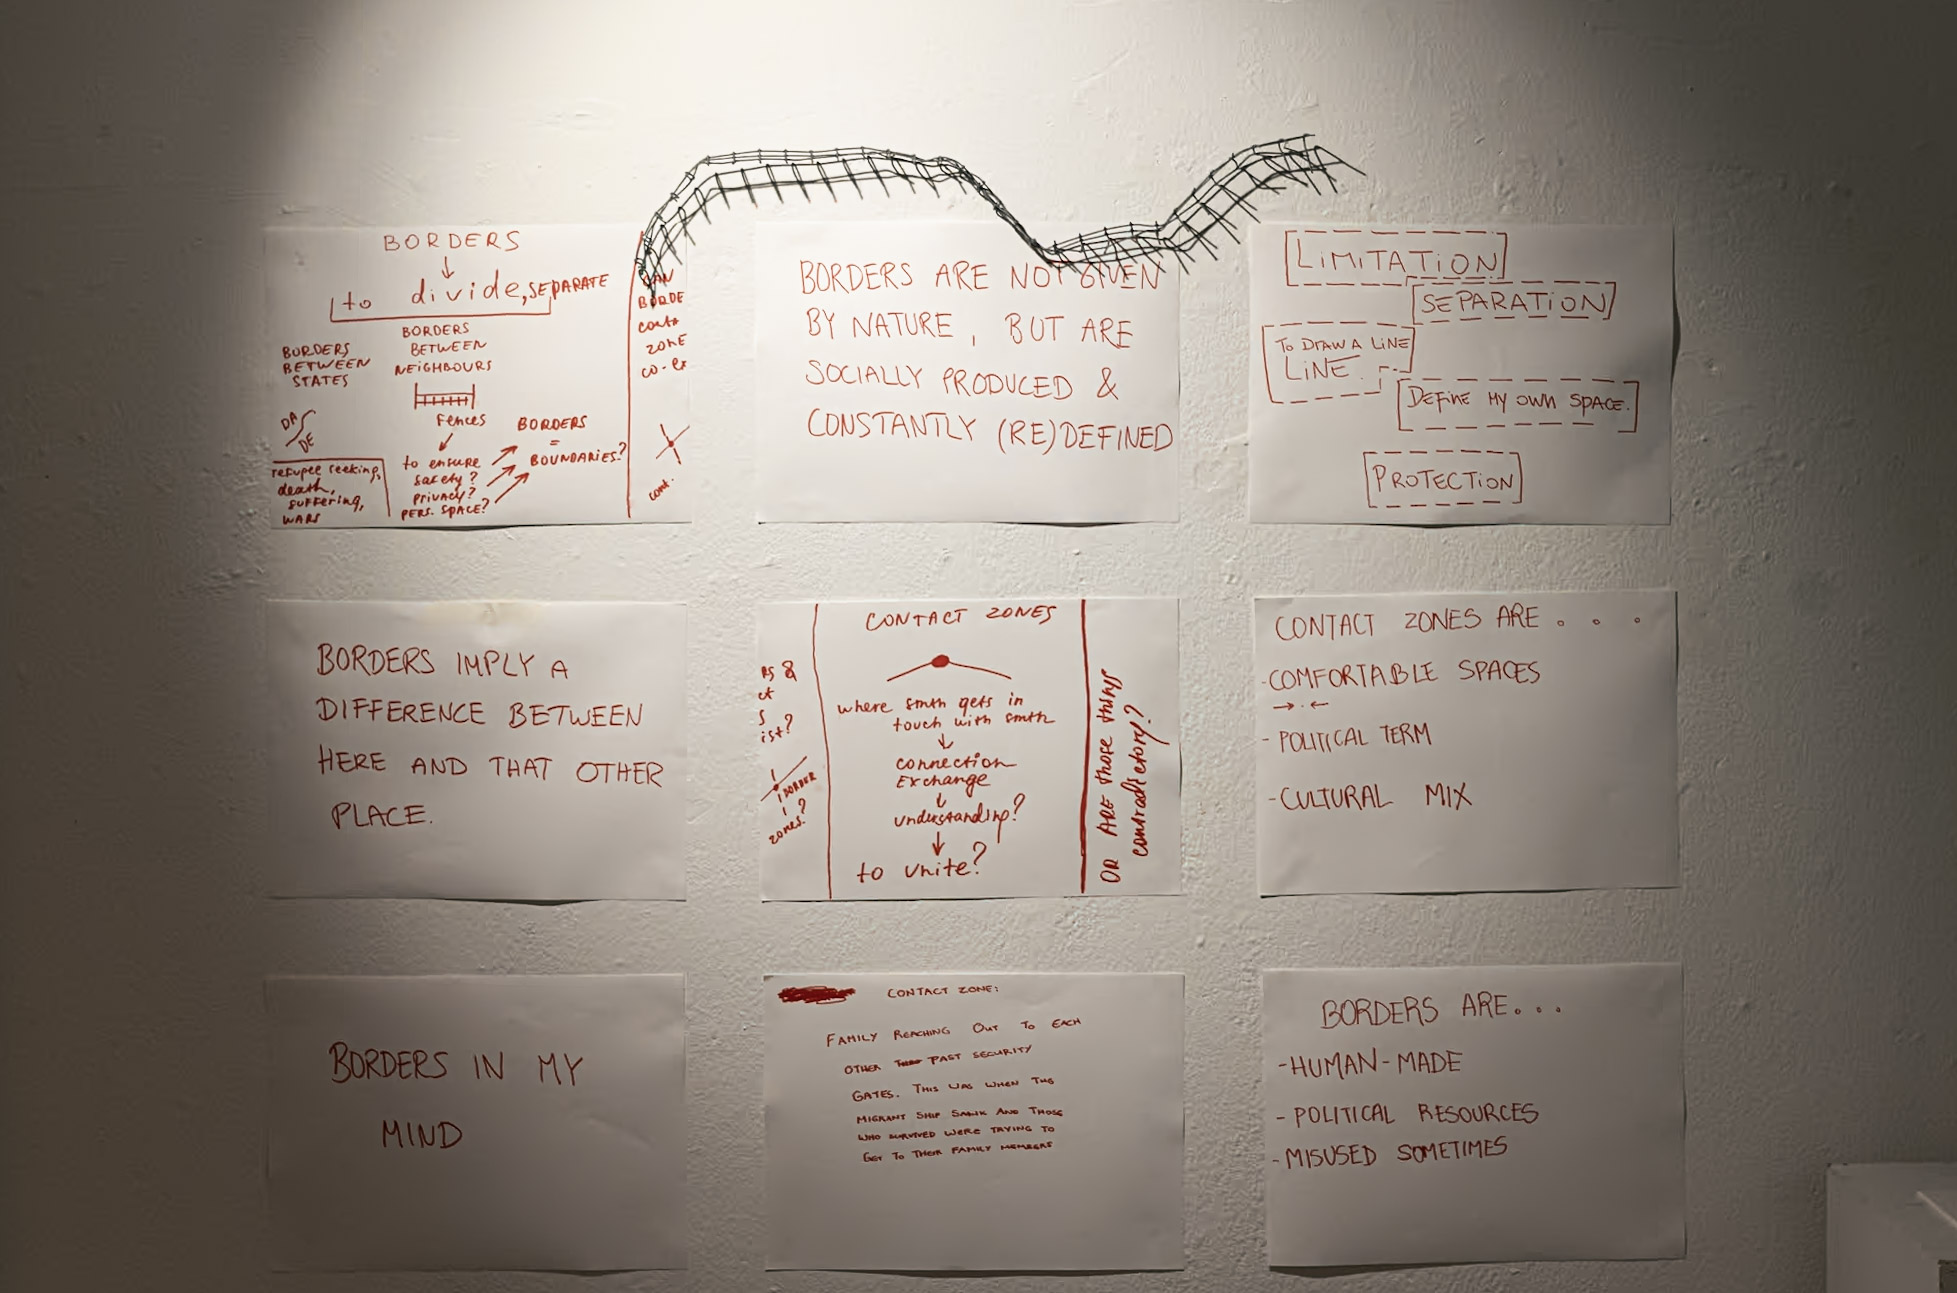 BORDERS
to divide, SEPARATE
BORDERS
BETWEEN
STATES
DA
DE
refugee seeking,
death,
suffering,
WARS
BORDERS
BETWEEN
NEIGHBOURS
Fences
to ensure
safety?
privacy?
PERS. SPACE?
BORDERS
=
BOUNDARIES?
BORDE
conta
zone
co-ex
cont.
BORDERS ARE NOT GIVEN
BY NATURE, BUT ARE
SOCIALLY PRODUCED &
CONSTANTLY (RE)DEFINED
LIMITATION
SEPARATION
TO DRAW A LINE
LINE
DEFINE MY OWN SPACE.
PROTECTION
BORDERS IMPLY A
DIFFERENCE BETWEEN
HERE AND THAT OTHER
PLACE.
RS &
ct
s
ist?
BORDER
zones?
CONTACT ZONES
where smth gets in
touch with smth
connection
Exchange
understanding?
to unite?
OR ARE those things
contradictory?
CONTACT ZONES ARE . . .
-COMFORTABLE SPACES
→ · ←
- POLITICAL TERM
-CULTURAL MIX
BORDERS IN MY
MIND
CONTACT ZONE:
FAMILY REACHING OUT TO EACH
OTHER PAST SECURITY
GATES. THIS WAS WHEN THE
MIGRANT SHIP SANK AND THOSE
WHO SURVIVED WERE TRYING TO
GET TO THEIR FAMILY MEMBERS
BORDERS ARE...
-HUMAN-MADE
- POLITICAL RESOURCES
- MISUSED SOMETIMES